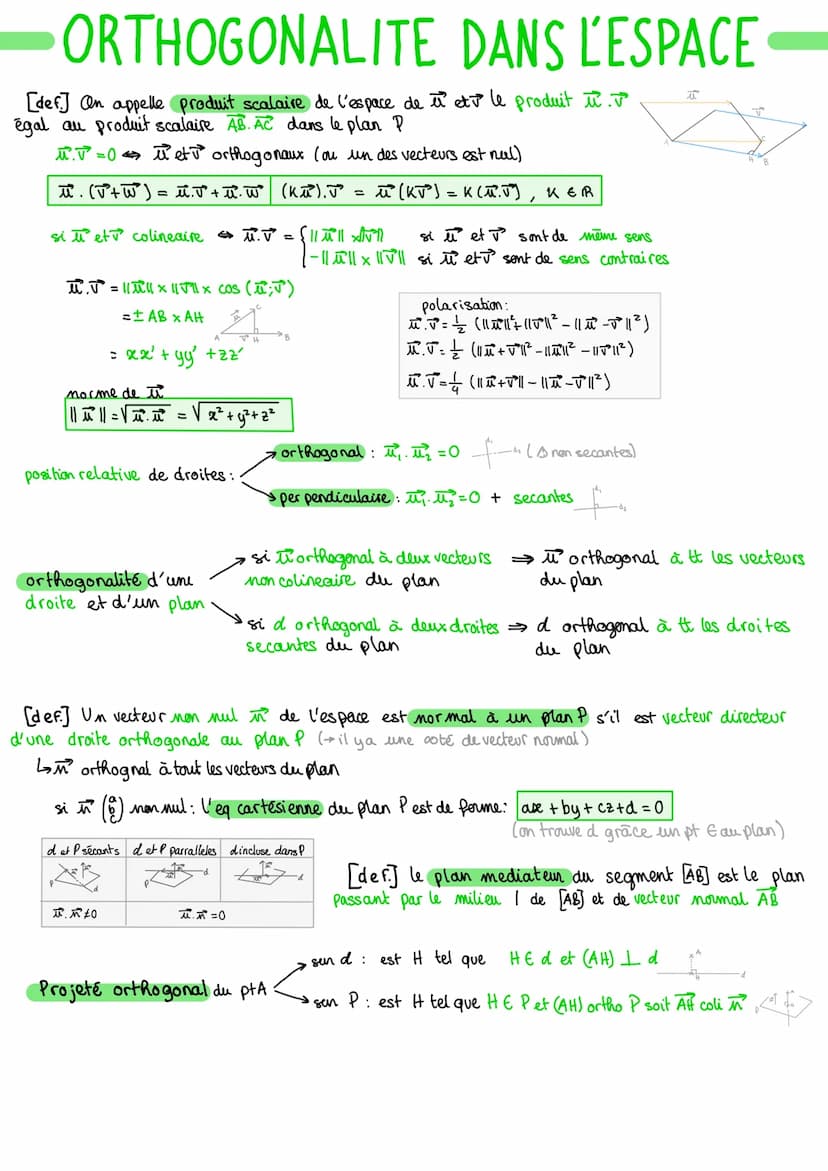 ORTHOGONALITE DANS L'ESPACE
[def.] On appelle produit scalaire de l'espace de u⃗ et v⃗ le produit u⃗.v⃗
égal au produit scalaire AB⃗.AC⃗ dans le plan P
u⃗.v⃗ = 0 ⇔ u⃗ et v⃗ orthogonaux (ou un des vecteurs est nul)
u⃗.(v⃗+w⃗) = u⃗.v⃗ + u⃗.w⃗ | (Ku⃗).v⃗ = u⃗(Kv⃗) = K(u⃗.v⃗) , K ∈ R
si u⃗ et v⃗ colineaire ⇔ u⃗.v⃗ = { ||u⃗|| x ||v⃗|| si u⃗ et v⃗ sont de même sens
-||u⃗|| x ||v⃗|| si u⃗ et v⃗ sont de sens contraires
u⃗.v⃗ = ||u⃗|| x ||v⃗|| x cos (u⃗;v⃗)
= ± AB x AH
= xx' + yy' + zz'
polarisation:
u⃗.v⃗ = 1/2 (||u⃗||² + ||v⃗||² - ||u⃗ - v⃗||²)
u⃗.v⃗ = 1/2 (||u⃗ + v⃗||² - ||u⃗||² - ||v⃗||²)
u⃗.v⃗ = 1/4 (||u⃗ + v⃗|| - ||u⃗ - v⃗||²)
norme de u⃗
||u⃗|| = √u⃗.u⃗ = √x² + y² + z²
position relative de droites :
orthogonal : u⃗₁.u⃗₂ = 0 (Δ non secantes)
perpendiculaire : u⃗₁.u⃗₂ = 0 + secantes
orthogonalité d'une
droite et d'un plan
si u⃗ orthogonal à deux vecteurs ⇒ u⃗ orthogonal à tt les vecteurs
non colineaire du plan du plan
si d orthogonal à deux droites ⇒ d orthogonal à tt les droites
secantes du plan du plan
[def.] Un vecteur non nul n⃗ de l'espace est normal à un plan P s'il est vecteur directeur
d'une droite orthogonale au plan P (→ il y a une ∞té de vecteur normal)
↳ n⃗ orthognal à tout les vecteurs du plan
si n⃗ (a b c) non nul : l'eq cartésienne du plan P est de forme: ax + by + cz + d = 0
(on trouve d grâce un pt ∈ au plan)
d et P sécants | d et P parralleles | d incluse dans P
u⃗.n⃗ ≠ 0 | u⃗.n⃗ = 0
[def.] le plan mediateur du segment [AB] est le plan
passant par le milieu I de [AB] et de vecteur normal AB⃗
Projeté orthogonal du pt A
sur d : est H tel que H ∈ d et (AH) ⊥ d
sur P : est H tel que H ∈ P et (AH) ortho P soit AH⃗ coli n⃗